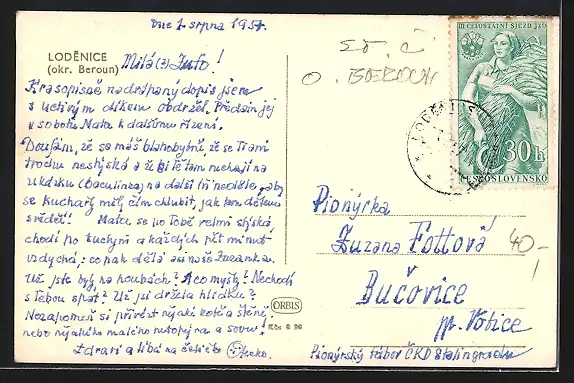 Dne 1. srpna 1957.
LODĚNICE
(okr. Beroun)
Milá(3) Zufo!
Krasopisně nadepsaný dopis jsem
s uctivým díkem obdržel. Předám jej
v sobotu Matce k dalšímu řízení.
Doufám, že se máš blahobytně, že se Ti ani
trochu nestýská a že Tě tam nechají na
ukázku na další tři neděle, aby
se kuchařky měly čím chlubit, jak jsou dětem
Matce se po Tobě velmi stýská,
chodí po kuchyni a každých pět minut
vzdychá: copak dělá asi naše Zuzanka.
Už jste byly na houbách? A co myši? Nechodí
s Tebou spát? Už jsi držela hlídku?
Nezapomeň si přivést nějaké kotě a štěně,
nebo nějakého malého netopýra a sovu!
Zdraví a líbá na čelíčko
ORBIS
III. CELOSTÁTNÍ SJEZD JZD
30 h
ČESKOSLOVENSKO
Pionýrka
Zuzana Fottová
40-
Bučovice
p. Votice
Pionýrský tábor ČKD Stalingrad